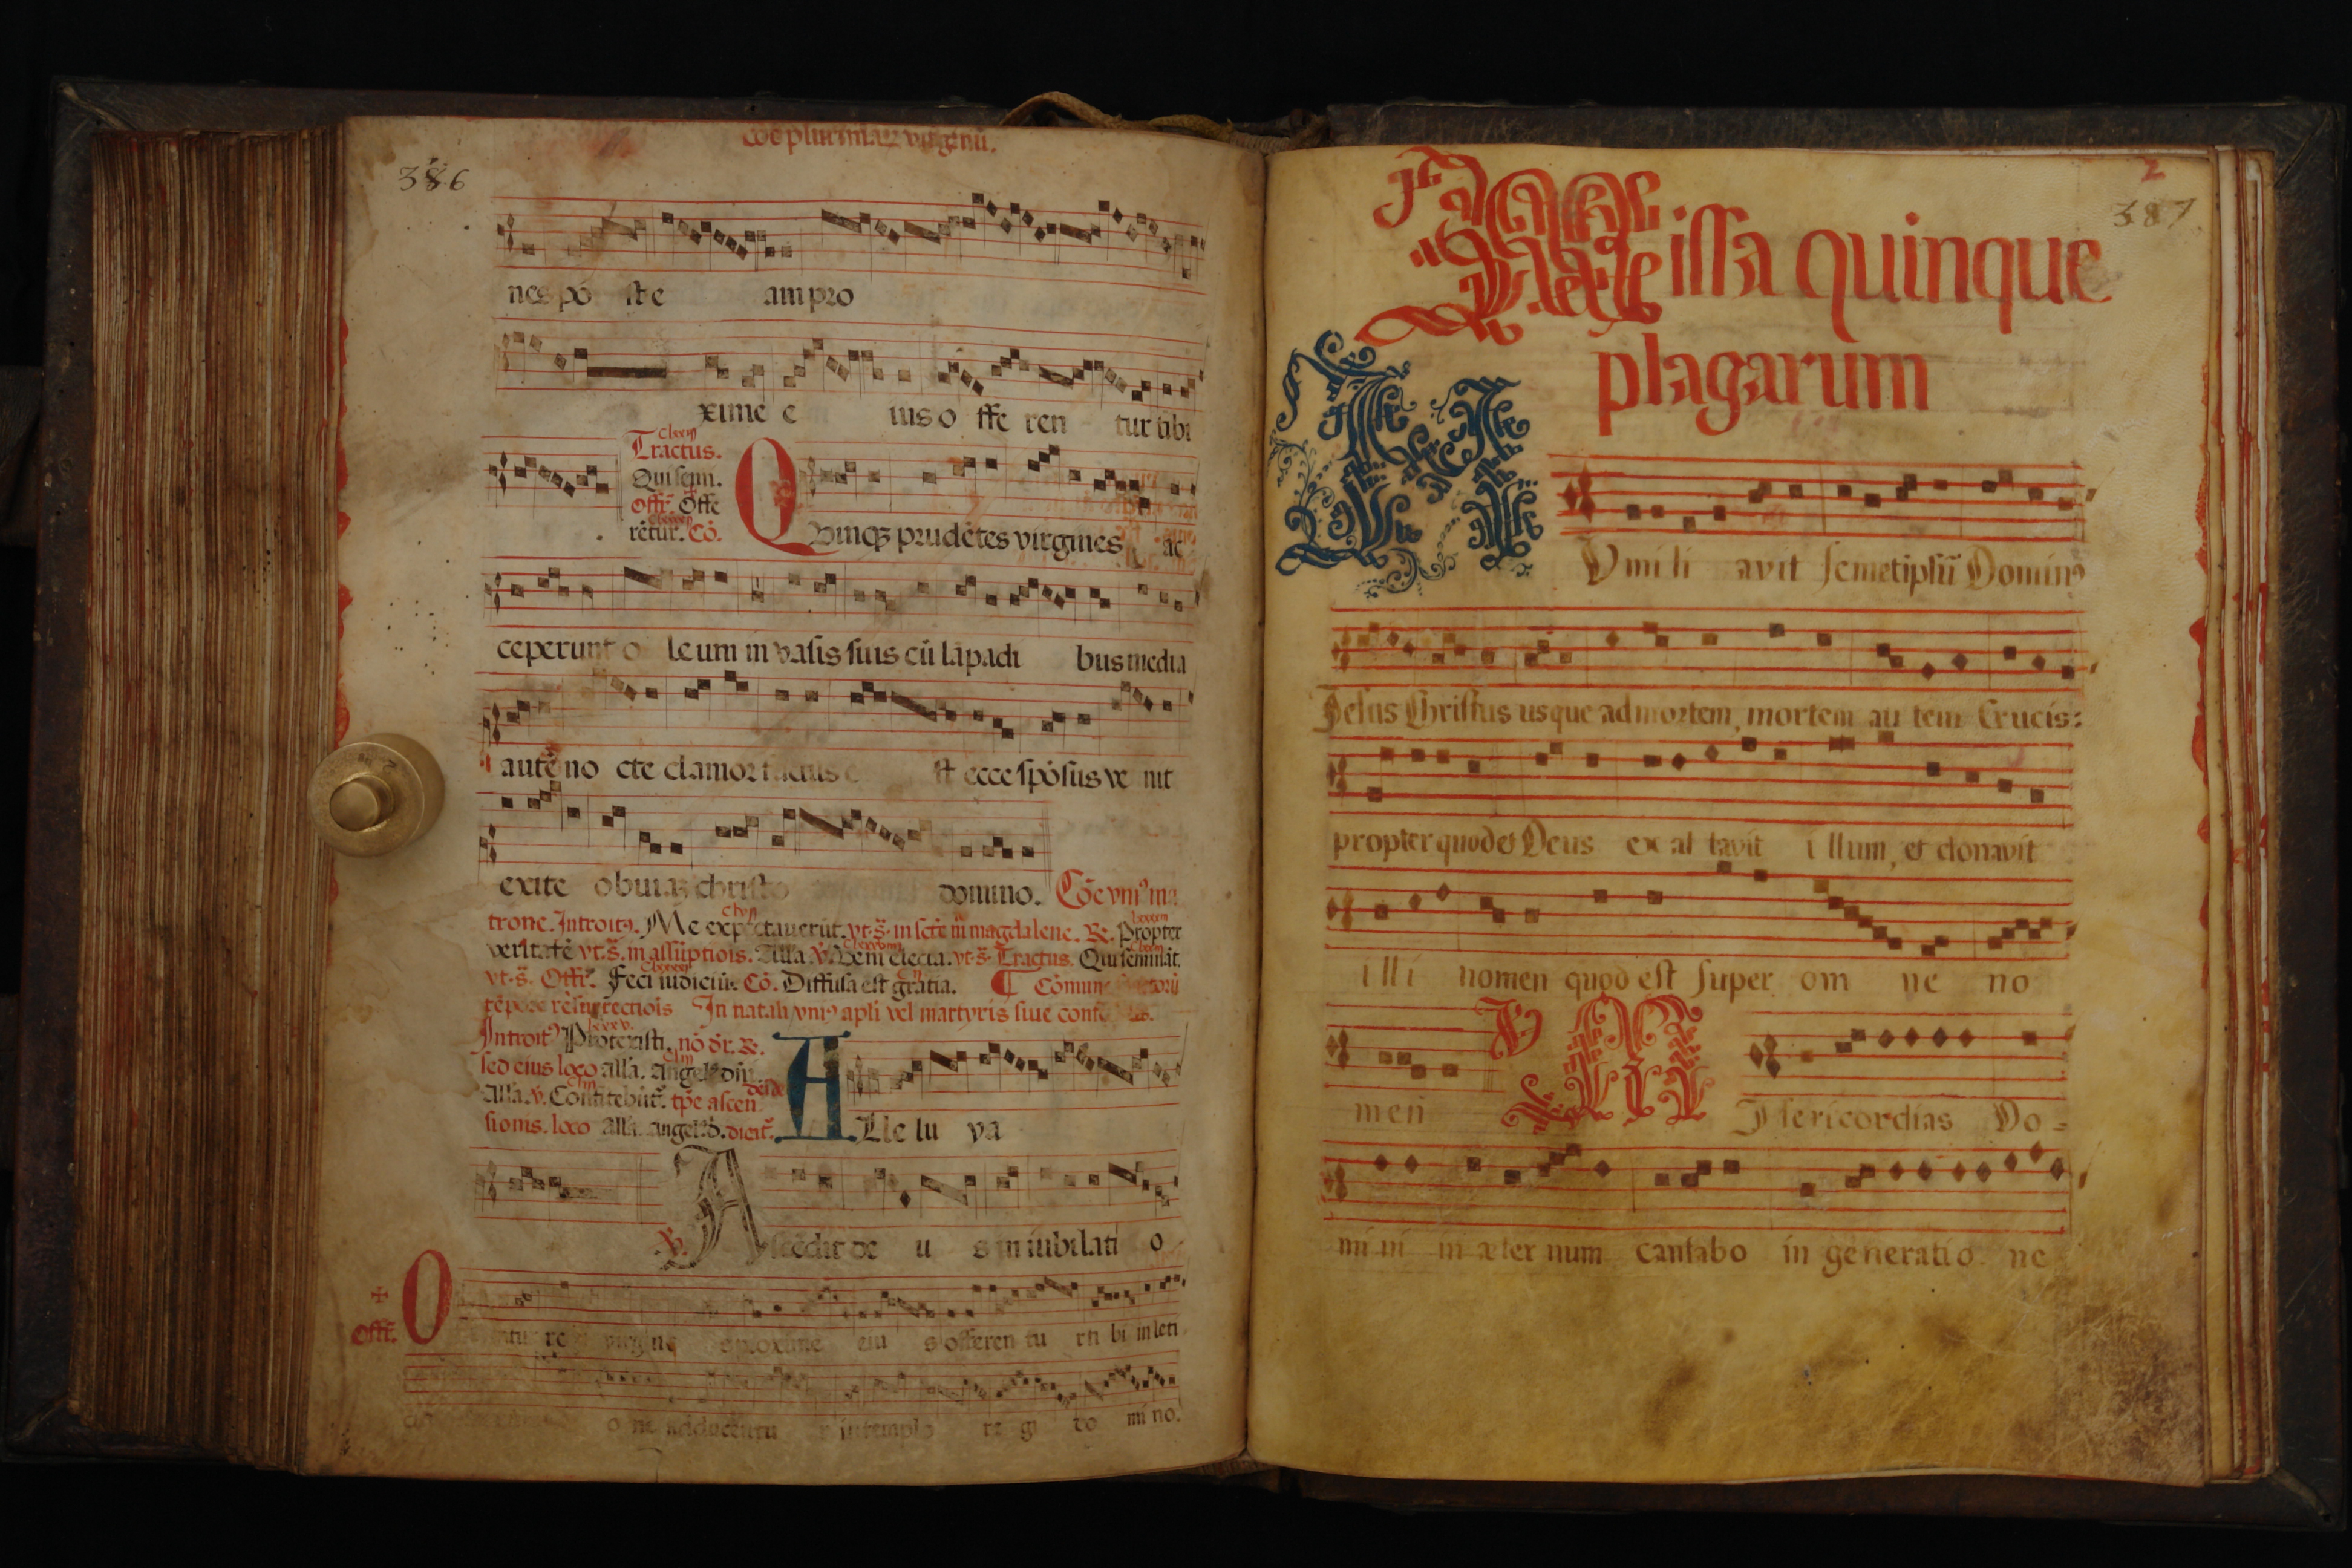 cõe plurimaꝝ virginũ.
386
nes pò st e am pro
xime e ius o ffe ren tur tibi
Tractus.
Qui semi.
Offr̃. Offe
rētur. Cõ.
Quinqꝫ prudētes virgines ac
ceperunt o leum in vasis suis cũ lāpadi bus media
autē no cte clamor factus e st ecce spōsus ve nit
exite obuiaꝫ christo domino. Cõe vniꝰ ma
trone. Introitꝰ. Me expectauerūt. vt.s̃. in magdalene. ℞. Propter
veritatē vt.s̃. in assūptiõis. Alla. ℣. Veni electa. vt.s̃. Tractus. Qui seminãt.
vt.s̃. Offr̃. Feci iudiciũ. Cõ. Diffusa est gratia. ¶ Cõmune
tēpore resurrectiõis In natali vniꝰ apli vel martyris siue
Introitꝰ Protexisti. nõ dr̃. ℞.
sed eius loco alla. angelꝰ dñi
Alla. ℣. Confitebũt̃. tp̃e ascen
sionis. loco Alla. angelꝰ d. dicit̃.
ALle lu ya
℣. Ascēdit de u s in iubilati o
Offr̃. O re virgine s proxime eiu s offeren tu r ti bi in leti
o ne adducentu r in templo re gi do mi no.
2
387
Missa quinque
plagarum
HVmi li avit semetipsũ Dominꝰ
Jesus Christus usque ad mortem, mortem au tem Crucis:
propter quod et Deus ex al tavit i llum, et donavit
i lli nomen quod est super om ne no
men ℣ MIsericordias Do=
mi ni in æter num cantabo in generatio ne